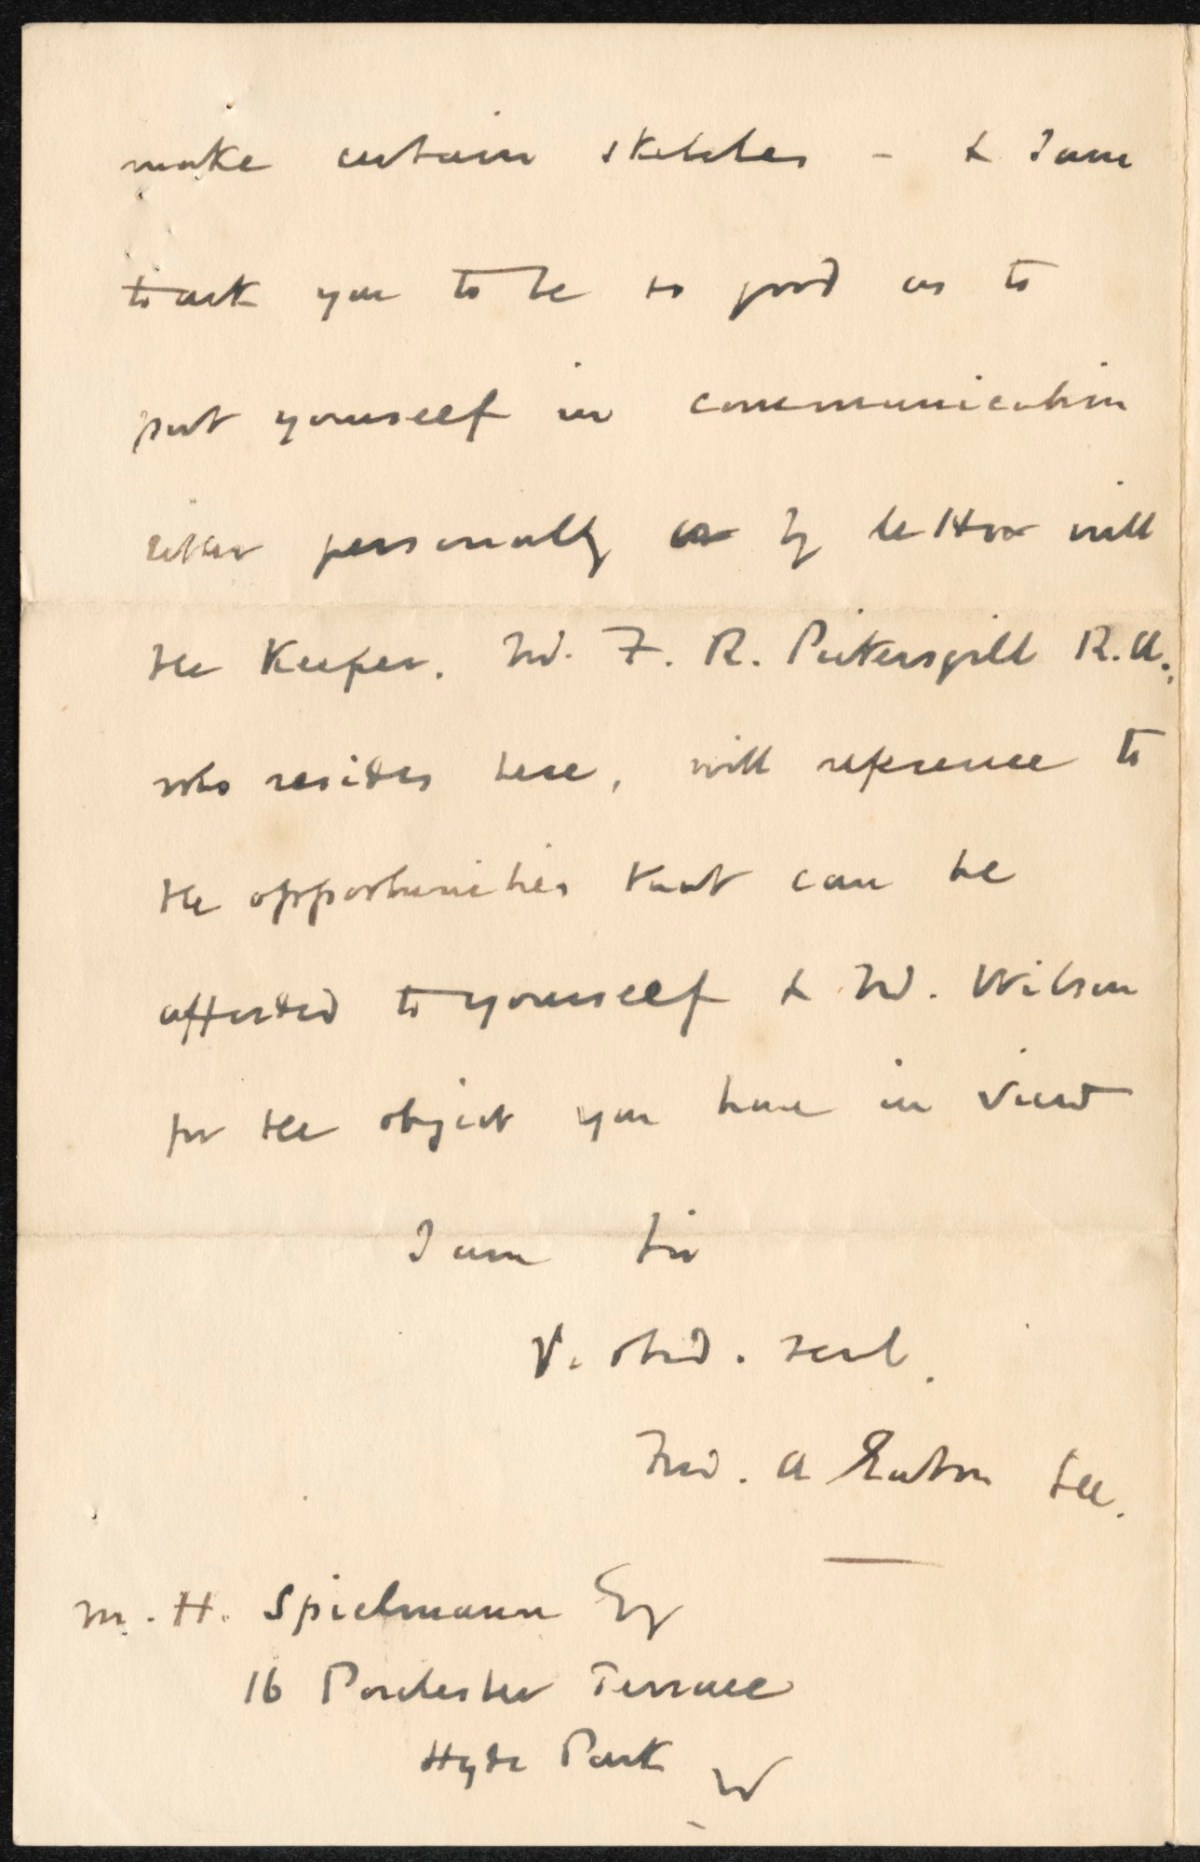 make certain sketches - & I am
to ask you to be so good as to
put yourself in communication
either personally or by letter with
the Keeper. Mr. F. R. Pickersgill R.A.,
who resides here, with reference to
the opportunities that can be
afforded to yourself & Mr. Wilson
for the object you have in view
I am Sir
Y. obed. serv.
Fred. A Eaton Sec.
M. H. Spielmann Esq
16 Porchester Terrace
Hyde Park W